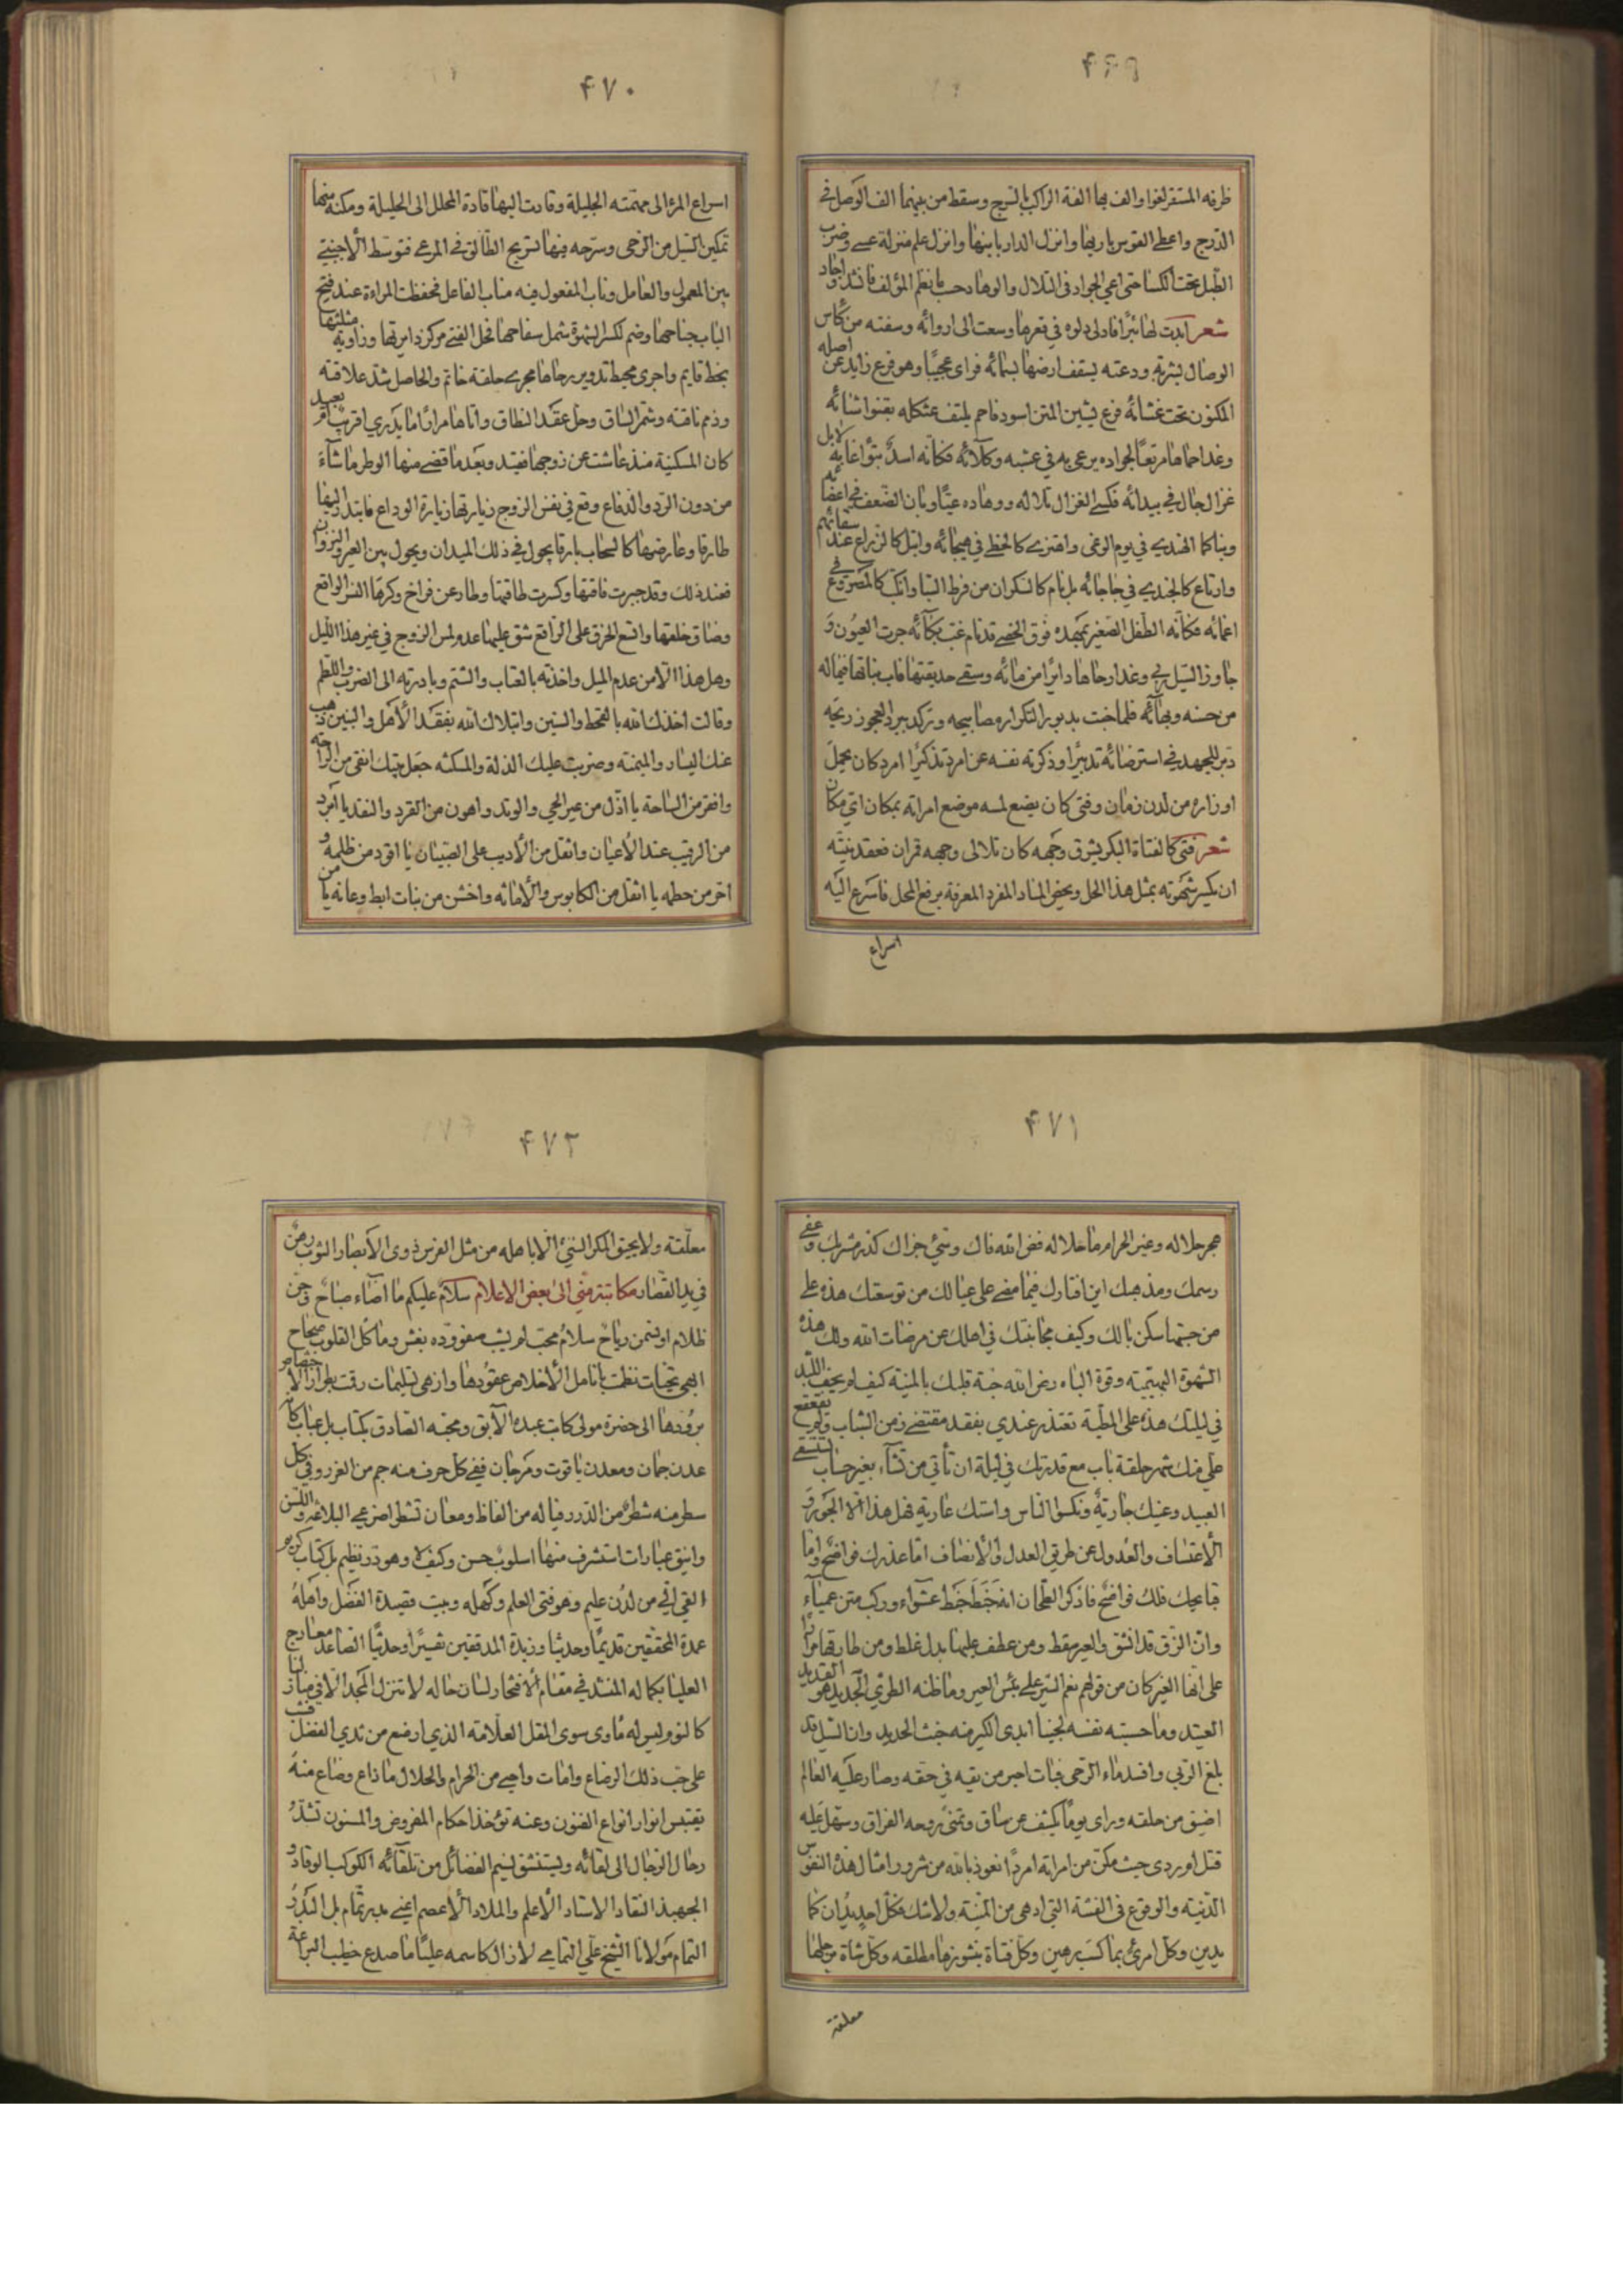 ۴۶۹
ظرفه المستقر لغوا والف بها الفة الراكب بالسرج وسقط من بينهما الف الوصل في
الدرج واعطى القوس باريها وانزل الدار بانيها وانزل علم منزلة عسى وضرب
الطبل تحت الكسا حتى اعي الجواد في التلال والوهاد حب ما نظم المؤلف فانشد واجاد
شعر ابدت لها بئرا فادلى دلوه في قعرها وسعت الى اروائه وسقته من كاس
الوصال بشربة ودعته يسقف ارضها بسمائه فراى عجيبا وهو فرع زايد عن اصله
المكنون تحت غشائه فرع يشين المتن اسود فاحم يلتف عثكله بقنو اشائه
وغدا حماها مرتعا لجواده يرعى به في عشبه وكلائه فكانه اسد تبوا غابه لا بل
غزال جال في بيدائه فكسى الغزال تلاله ووهاده عيا وبان الضعف في اعضائه
ونبا كما الهندي في يوم الوغى واهتزي كالخطي في هيجائه وابتل كالزراع عند سقائهم
وارتاع كالجندي في جاجائه بل نام كالسكران من فرط التبا وانكب كالمصروع في
اغمائه فكانه الطفل الصغير بمهده فوق الخصى قد نام غب بكائه جرت العيون و
جاوز السيل الربى وغدا رحاها دايرا من مائه وسقى حديقتها فاب بناتها فيا له
من حسنه وبهائه فلما خبت بدبور التكرار مصابيحه وتركد ببرد العجوز ريحه
دبر للجهد في استرضائه تدبيرا وذكرته نفسه عن امرد تذكيرا امرد كان يحمل
اوزاره من لدن زمان وفتى كان يضع لمسه موضع امراته بمكان اي مكان
شعر فتى كالفتاة البكر يشرق وجهه كان تلالي وجهه قمران فعقد نيته
ان يكسر شهوته بمثل هذا الحل ويخفض المناد المفرد المعرفة برفع المحل فاسرع اليه
اسراع
۴۷۰
اسراع المرء الى مهمته الجليلة وقادت اليها قادة المحلل الى الحليلة ومكنه منها
تمكين السيل من الرحى وسرحه فيها تسريح الطالق في المرعى فتوسط الاجنبي
بين المعمول والعامل وناب المفعول فيه مناب الفاعل فحفظت المراءة عند فتح
الباب جناحها وضم لكسر الشهوة شمل سفاحها فحل الفتى مركز دايرتها وزاوية مثلثها
بخط قايم واجرى محيط تدوير رحاها مجرى حلقة خاتم والحاصل شد علاقته
وذم ناقته وشمر الساق وحل عقد النطاق واتاها مرارا ما يدري اقريب ام بعيد
كان المسكنية منذ عاشت عن زوجها فقيد وبعد ما قضى منها الوطر ما شاء
من دون الرد والدفاع وقع في نفس الزوج زيارتها زيارة الوداع فابتدر اليها
طارقا وعارضها كالسحاب بارقا يجول في ذلك الميدان ويحول بين العير والنزوان
فعند ذلك وقد جبرت فاقتها وكسرت طاقتها وطار عن فراخ وكرها النسر الواقع
وضاق خلقها واتسع الخرق على الراقع شق عليها عدو لمس الزوج في غير هذا الليل
وهل هذا الا من عدم الميل واخذته بالعتاب والشتم وبادرته الى الضرب واللطم
وقالت اخذك الله بالقحط والسنين وابتلاك الله بفقد الاهل والبنين ذهب
عنك اليسار والميمنة وضربت عليك الذلة والمسكنه جعل جيبك انقى من الراحة
وافقر من الساحة يا اذل من عير الحي والوتد واهون من القرد والنقد يا ابرد
من الرقيب عند الاعيان واثقل من الاديب على الصبيان يا اقود من ظلمه و
اخر من حطمه يا اثقل من الكابوس والامانه واخشن من بنات ابط وعانه يا من
۴۷۱
هجر حلاله وغير الحرام ما حلا له فض الله فاك وسيئ جزاك كدر مشربك وعفى
رسمك ومذهبك اين اقتارك فيما مضى على عيالك من توسعتك هذه على
من جيتها سكن بالك وكيف مجانبتك في اهالك عن مرضات الله ولك هذه
الشهوة البهيمية وقوة الباء رض الله حبة قلبك بالمنية كيف لم يخف اللبد
في ليلتك هذه على المطية تعتذر عندي بفقد مقتضى زمن الشباب ولم تقعقع
على منك شهر حلقة باب مع قدرتك في ليلة ان تأتي من تشاء بغير حساب تستقي
العبيد وعينك جارية وتكسو الناس واستك عارية فهل هذا الا الجور و
الاعتساف والعدول عن طرقي العدل والانصاف اما عذرك فواضح واما
قبايحك فلك فواضح فاذكر الطحان انه خبط خبط عشواء وركب متن عمياء
وان الزق قد انشق والعير سقط ومن عطف عليها بدل غلط ومن طارقها مرارا
على انها الغير كان من قولهم نعم السير على بئس العير وما ظنه الطري الجديد هو القديد
العتيد وما حسبته نفسه لجينا ابدى الكير منه خبث الحديد وان السيل قد
بلغ الزبى وافسد ماء الرحى فبات احير من بقه في حقه وصار عليه العالم
اضيق من حلقه وراى يوما يكشف عن ساق وتمنى بروحه الفراق وسهل عليه
قتل او ردى حيث مكن من امراته امردا نعوذ بالله من شرور امثال هذه النفوس
الدنية والوقوع في الفتنة التي ادهى من المنية ولا شك فكل احد يدان كما
يدين وكل امرئ بما كسب رهين وكل فتاة بنشوزها مطلقه وكل شاة برجلها
معلقة
۴۷۲
معلقة ولا يحيق المكر السيئ الا باهله من مثل العزيز ذوى الابصار الثوب رهن
في يد القصار مكاتبة مني الى بعض الاعلام سلام عليكم ما اضاء صباح وجن
ظلام او تنمن رياح سلام محب لم يشب صفو وده بغش وما كل القلوب صحاح
ابهى تحيات نظمت بانامل الاخلاص عقودها وازهى تسليمات رقت بطراز الاختصاص
برودها الى حضرة مولى كاتب عبده الابق ومحبه الصادق بكتاب بل عباب كانه
عدن جمان ومعدن ياقوت ومرجان ففي كل حرف منه جم من الغرر وفي كل
سطر منه شطر من الدرر فيا له من الفاظ ومعان تسطر اضرعي البلاغه واللسن
وانيق عبارات استشرف منها اسلوب حسن وكيف لا وهو در نظيم بل كتاب كريم
القي الي من لدن عليم وهو فتى العلم وكهله وبيت قصيدة الفضل واهله
عمدة المحققين قديما وحديثا وزبدة المدققين تفسيرا وحديثا الصاعد معارج
العليا بكماله المنشد في مقام الافتخار لسان حاله لا تنزل المجد الا في منازلنا
كالنوم ليس له ماوى سوى المقل العلامة الذي ارضع من ثدي الفضل فشب
على حب ذلك الرضاع وامات واحيى من الحرام والحلال ما ذاع وضاع منه
يقتبس انوار انواع الفنون وعنه تؤخذ احكام المفروض والمسنون تشد
رحال الرجال الى لقائه ويستنشق نسيم الفضائل من تلقائه الكوكب الوقاد و
الجهبذ النقاد الاستاد الاعلم والملاد الاعصم اعني بدر تمام بل البدر
التمام مولانا الشيخ علي التمامي لا زال كاسمه عليا ما صدع خطيب البراعة